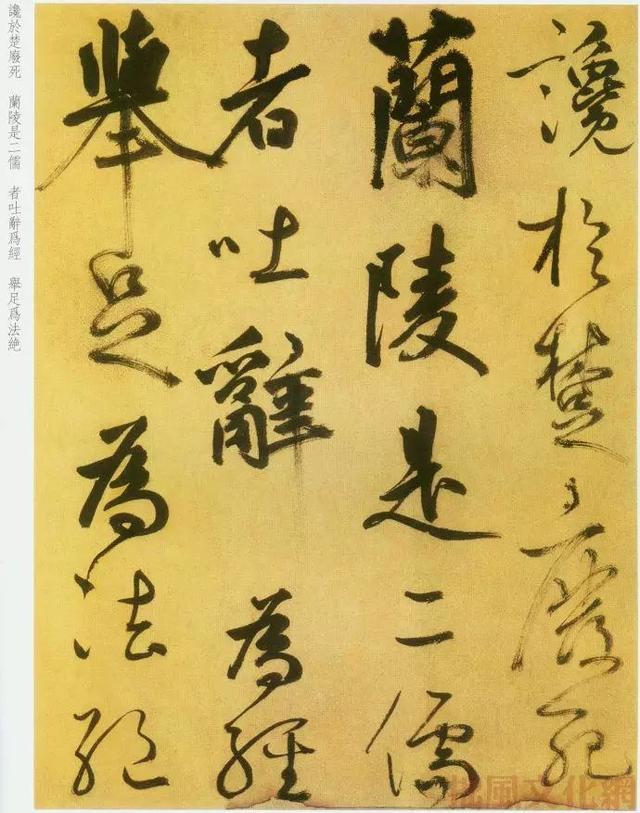 讒於楚廢死
蘭陵是二儒
者吐辭為經
舉足為法絕
讒於楚廢死 蘭陵是二儒 者吐辭爲經 舉足爲法絶
風文化網